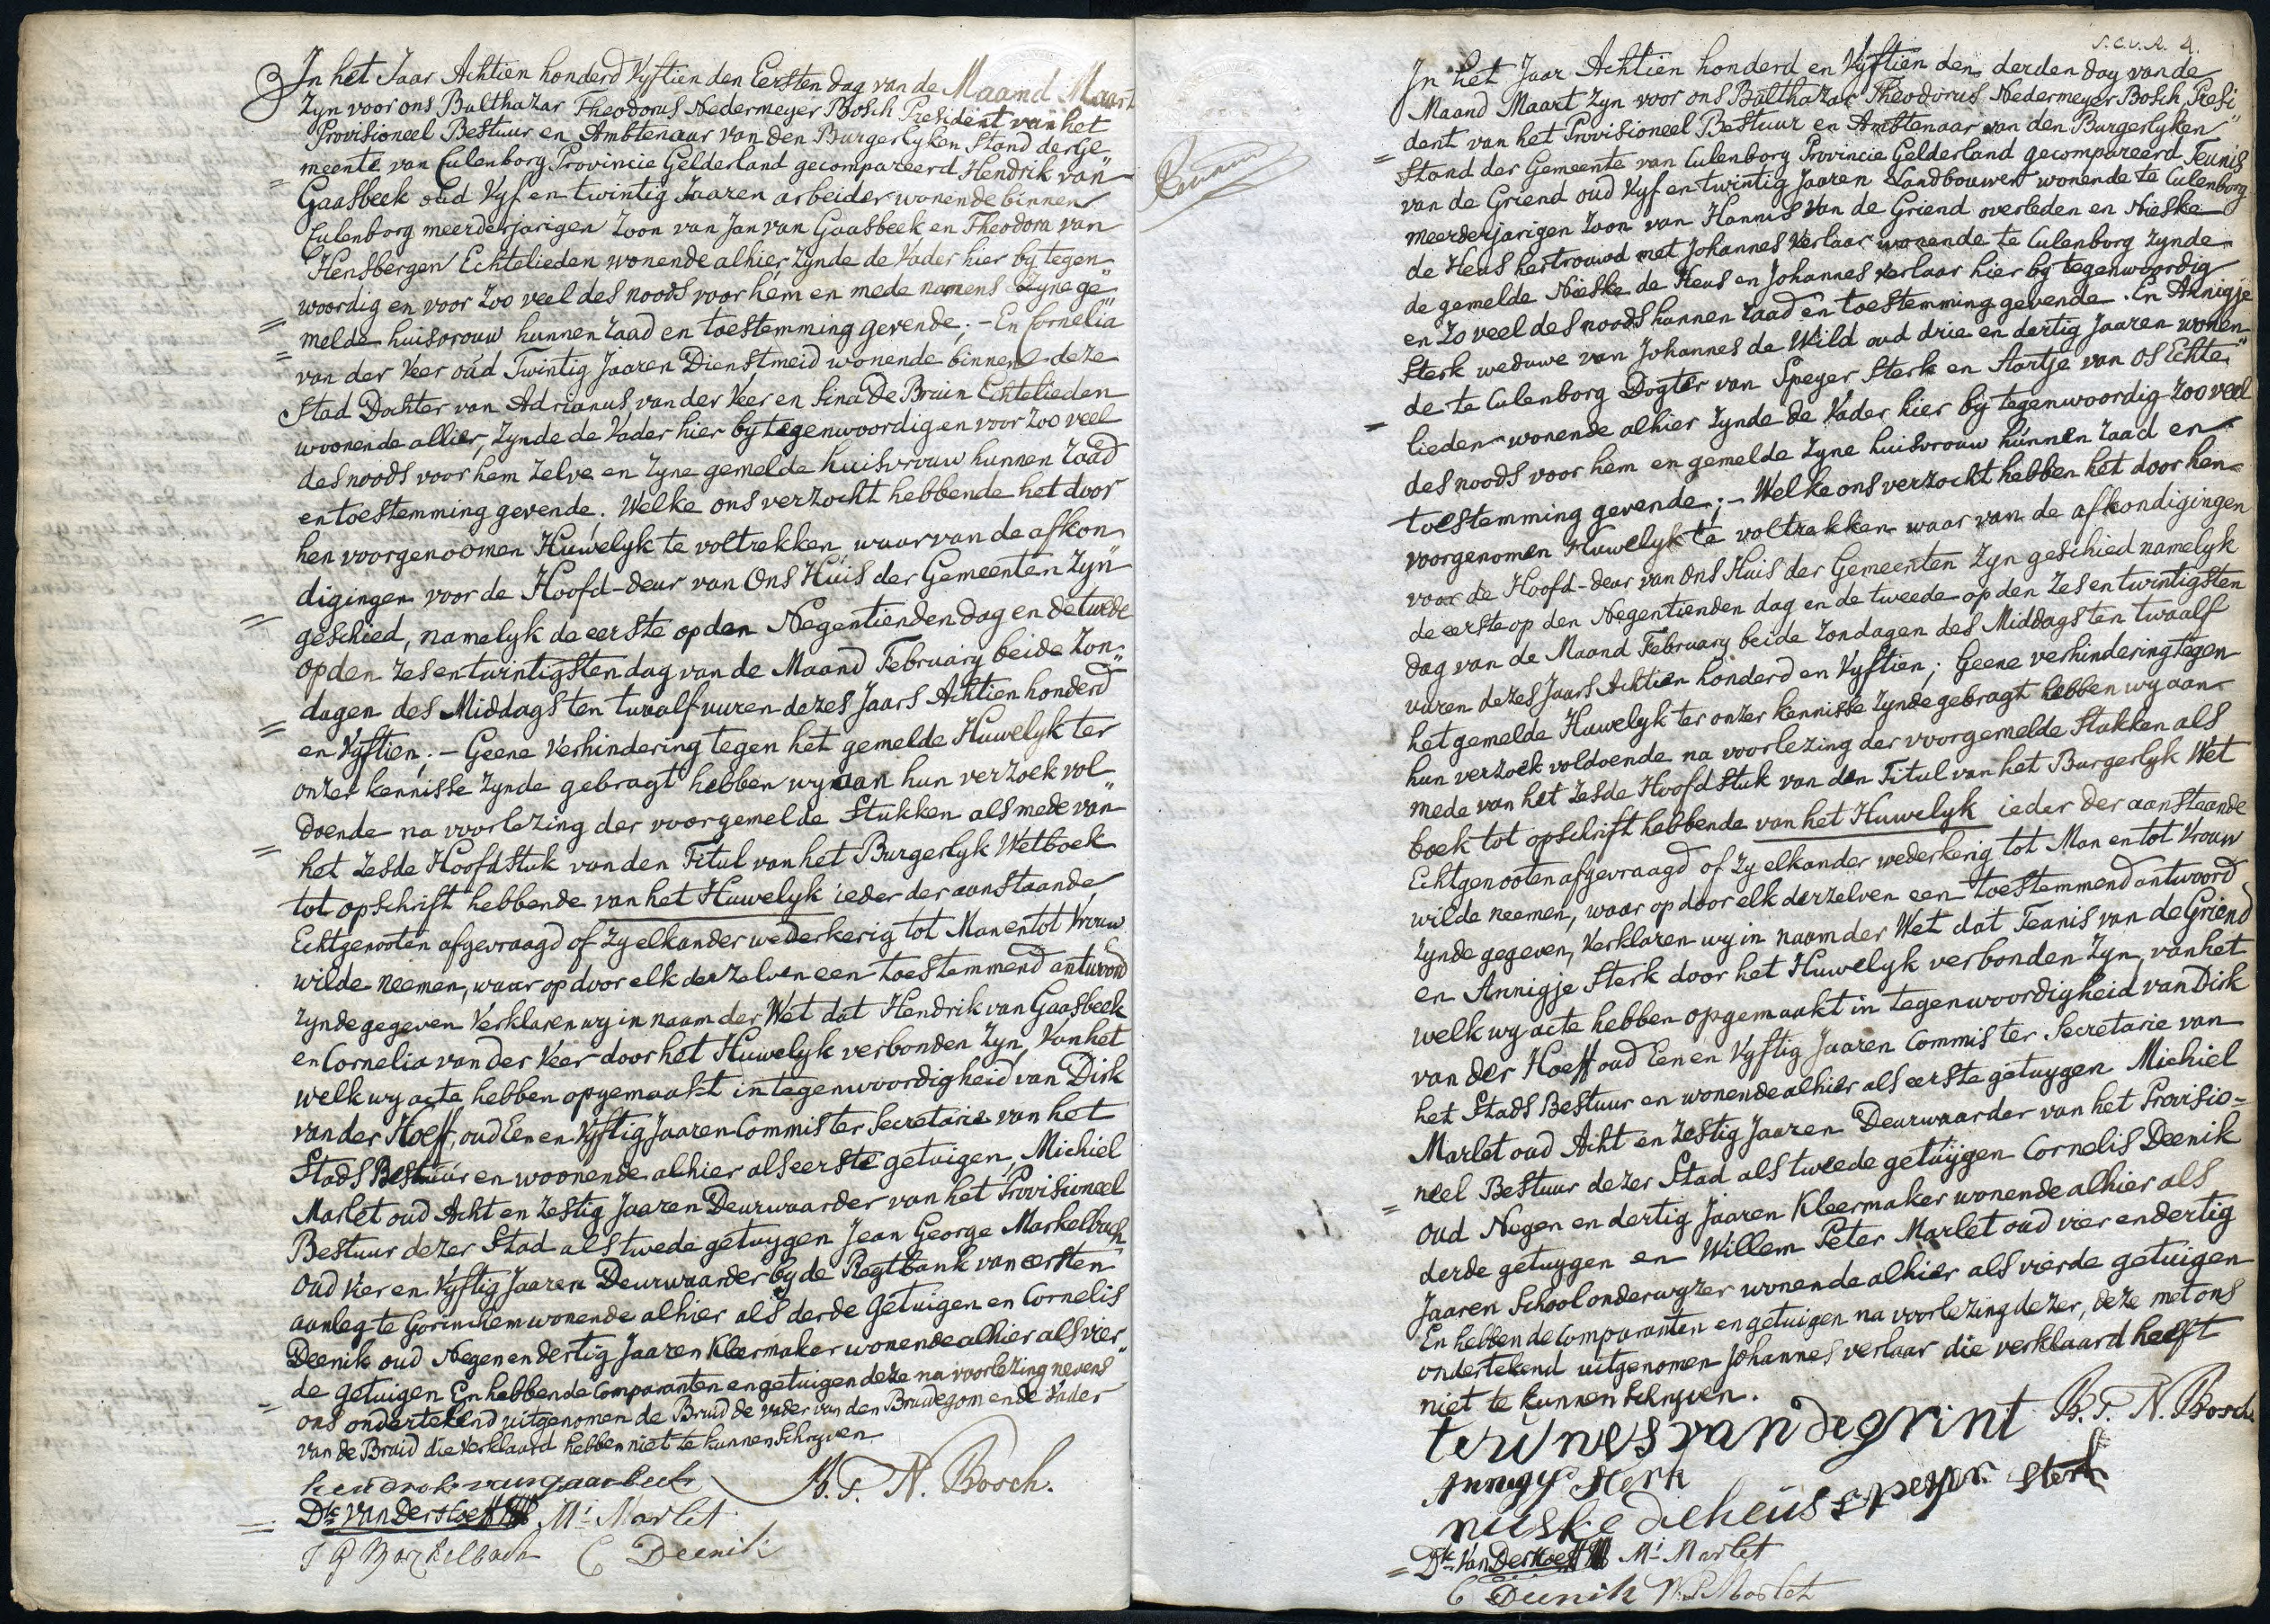 In het Jaar Achtien honderd Vyftien den Eersten dag van de Maand Maart
Zyn voor ons Balthazar Theodorus Nedermeyer Bosch President van het
Provisioneel Bestuur en Ambtenaar van den Burgerlyken Stand der Ge"
= meente van Culenborg Provincie Gelderland gecompareerd Hendrik van"
Gaasbeek oud Vyf en twintig Jaaren arbeider wonende binnen
Culenborg meerderjarigen Zoon van Jan van Gaasbeek en Theodora van
Hensbergen Echtelieden wonende alhier zynde de Vader hier by tegen
woordig en voor zoo veel des noods voor hem en mede namens Zyne ge"
= melde huisvrouw hunnen raad en toestemming gevende; - En Cornelia"
= van der Veer oud Twintig Jaaren Dienstmeid wonende binnen deze
Stad Dochter van Adrianus van der Veer en Sina De Bruin Echtelieden
woonende allier, Zynde de Vader hier by tegenwoordig en voor Zoo veel
des noods voor hem Zelve en Zyne gemelde huisvrouw hunnen raad
en toestemming gevende. Welke ons verzocht hebbende het door
hen voorgenoomen Huwelyk te voltrekken waar van de afkon
digingen voor de Hoofd-deur van Ons Huis der Gemeenten Zyn"
= geschied, namelyk de eerste op den Negentienden dag en de twede
op den Zes en twintigsten dag van de Maand February beide Zon"
dagen des Middags ten twaalf uuren dezes Jaars Achtien honderd"
= en Vyftien; - Geene Verhindering tegen het gemelde Huwelyk ter
onzer kennisse Zynde gebragt hebben wy aan hun verzoek vol
doende na voorlezing der voorgemelde Stukken als mede van"
= het Zesde Hoofdstuk van den Titul van het Burgerlyk Wetboek
tot opschrift hebbende van het Huwelyk ieder der aanstaande
Echtgenooten afgevraagd of Zy elkander wederkerig tot Man en tot Vrouw
wilde neemen, waar op door elk derzelven een toestemmend antwoord
Zynde gegeven Verklaren wy in naam der Wet dat Hendrik van Gaasbeek
en Cornelia van der Veer door het Huwelyk verbonden Zyn, Van het
welk wy acte hebben opgemaakt in tegenwoordigheid van Dirk
van der Hoeff, oud Een en Vyftig Jaaren Commis ter Secretarie van het
Stads Bestuur en woonende alhier als eerste getuigen, Michiel
Marlet oud Acht en Zestig Jaaren Deurwaarder van het Provisioneel
Bestuur dezer Stad als twede getuygen Jean George Markelbach
oud Vier en Vyftig Jaaren Deurwaarder by de Regtbank van eersten
aanleg te Gorinchem wonende alhier als derde Getuigen en Cornelis
Deenik oud Negen en dertig Jaaren Kleermaker wonende alhier als vier"
= de getuigen En hebben de Comparanten en getuigen deze na voorlezing nevens"
ons ondertekend uitgenomen de Bruid de vader van den Bruidegom en de Vader
van de Bruid die Verklaard hebben niet te kunnen Schryven
hendrok van gaasbeek B. T. N. Bosch.
= Dk Van Der Hoeff Mi Marlet
J G Markelbach C Deenik
S.C.v.R. 4.
In het Jaar Achtien honderd en Vyftien den derden dag van de
Maand Maart Zyn voor ons Balthazar Theodorus Nedermeyer Bosch, Presi"
= dent van het Provisioneel Bestuur en Ambtenaar van den Burgerlyken
Stand der Gemeente van Culenborg Provincie Gelderland gecompareerd Teunis
van de Griend oud Vyf en twintig Jaaren Landbouwer wonende te Culenborg
meerderjarigen Zoon van Hannis Van de Griend overleden en Nieske
de Heus hertrouwd met Johannes Verlaar wonende te Culenborg Zynde
de gemelde Nieske de Heus en Johannes Verlaar hier by tegenwoordig
en Zo veel des noods hunnen raad en toestemming gevende. En Annigje
Sterk weduwe van Johannes de Wild oud drie en dertig Jaaren wonen
de te Culenborg Dogter van Speyer Sterk en Aartje van Os Echte"
= lieden wonende alhier Zynde de Vader hier by tegenwoordig Zoo veel
des noods voor hem en gemelde Zyne huisvrouw hunnen raad en
toestemming gevende; - Welke ons verzocht hebben het door hen
voorgenomen Huwelyk te voltrekken waar van de afkondigingen
voor de Hoofd-deur van Ons Huis der Gemeenten Zyn geschied namelyk
de eerste op den Negentienden dag en de tweede op den Zes en twintigsten
dag van de Maand February beide Zondagen des Middags ten twaalf
vuren dezes Jaars Achtien honderd en Vyftien; Geene verhindering tegen
het gemelde Huwelyk ter onzer kennisse Zynde gebragt hebben wy aan
hun verzoek voldoende na voorlezing der voorgemelde Stukken als
mede van het Zesde Hoofdstuk van den Titul van het Burgerlyk Wet
boek tot opschrift hebbende van het Huwelyk ieder der aanstaande
Echtgenooten afgevraagd of Zy elkander wederkerig tot Man en tot Vrouw
wilde neemen, waar op door elk derzelven een toestemmend antwoord
Zynde gegeven, Verklaren wy in naam der Wet dat Teunis van de Griend
en Annigje Sterk door het Huwelyk verbonden Zyn, van het
welk wy acte hebben opgemaakt in tegenwoordigheid van Dirk
van der Hoeff oud Een en Vyftig Jaaren Commis ter Secretarie van
het Stads Bestuur en wonende alhier als eerste getuygen Michiel
Marlet oud Acht en Zestig Jaaren Deurwaarder van het Provisio-
= neel Bestuur dezer Stad als tweede getuygen Cornelis Deenik
oud Negen en dertig Jaaren Kleermaker wonende alhier als
derde getuygen en Willem Peter Marlet oud vier en dertig
Jaaren Schoolonderwyzer wonende alhier als vierde getuigen
En hebben de Comparanten en getuigen na voorlezing dezer, deze met ons
ondertekend uitgenomen Johannes verlaar die verklaard heeft
niet te kunnen Schryven.
teunes van de grint B. T. N. Bosch
Annigy Sterk
nieske de heus speyer sterk
= Dk Van Der Hoeff Mi Marlet
C Deenik W. P. Marlet